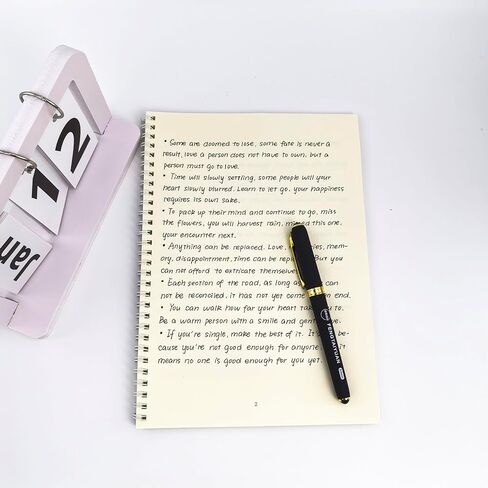 12
Jan
• Some are doomed to lose, some fate is never a
result, love a person does not have to own, but a
person must go to love.
• Time will slowly settling, some people will your
heart slowly blurred. Learn to let go, your happiness
requires its own sake.
• To pack up their mind and continue to go, miss
the flowers, you will harvest rain, this one,
your encounter next.
• Anything can be replaced. Love, mem-
ory, disappointment, time can be But you
can not afford to extricate
• Each section of the road, as long as
not be reconciled, it has not yet come end.
• You can walk how far your heart to
Be a warm person with a smile and
• If you're single, make the best of it. be-
cause you're not good enough for anyone
means no one is good enough for you yet.
2
FENGTAIYUAN